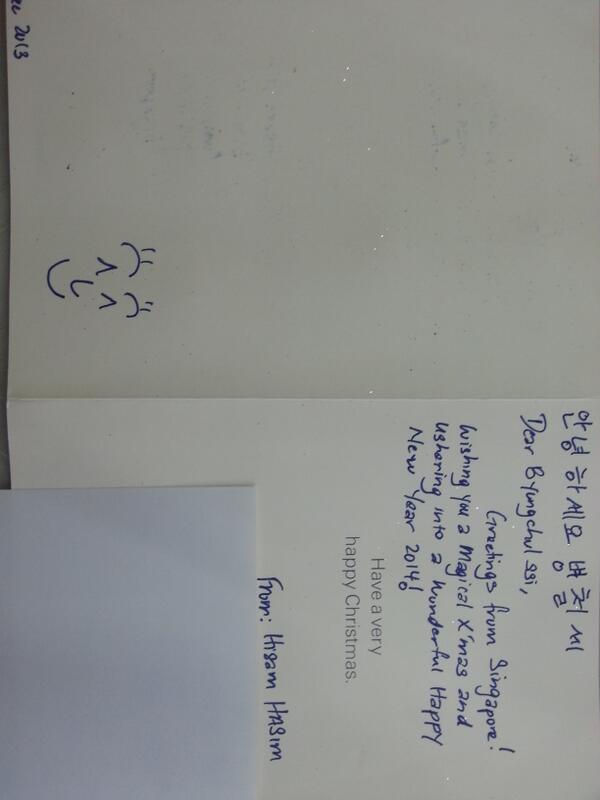 2013
안녕하세요 병철 씨
Dear Byungchul ssi,
Greetings from Singapore!
Wishing you a Magical X'mas and
ushering into a Wonderful Happy
New Year 2014!
Have a very
happy Christmas.
From: Hisam HASIM